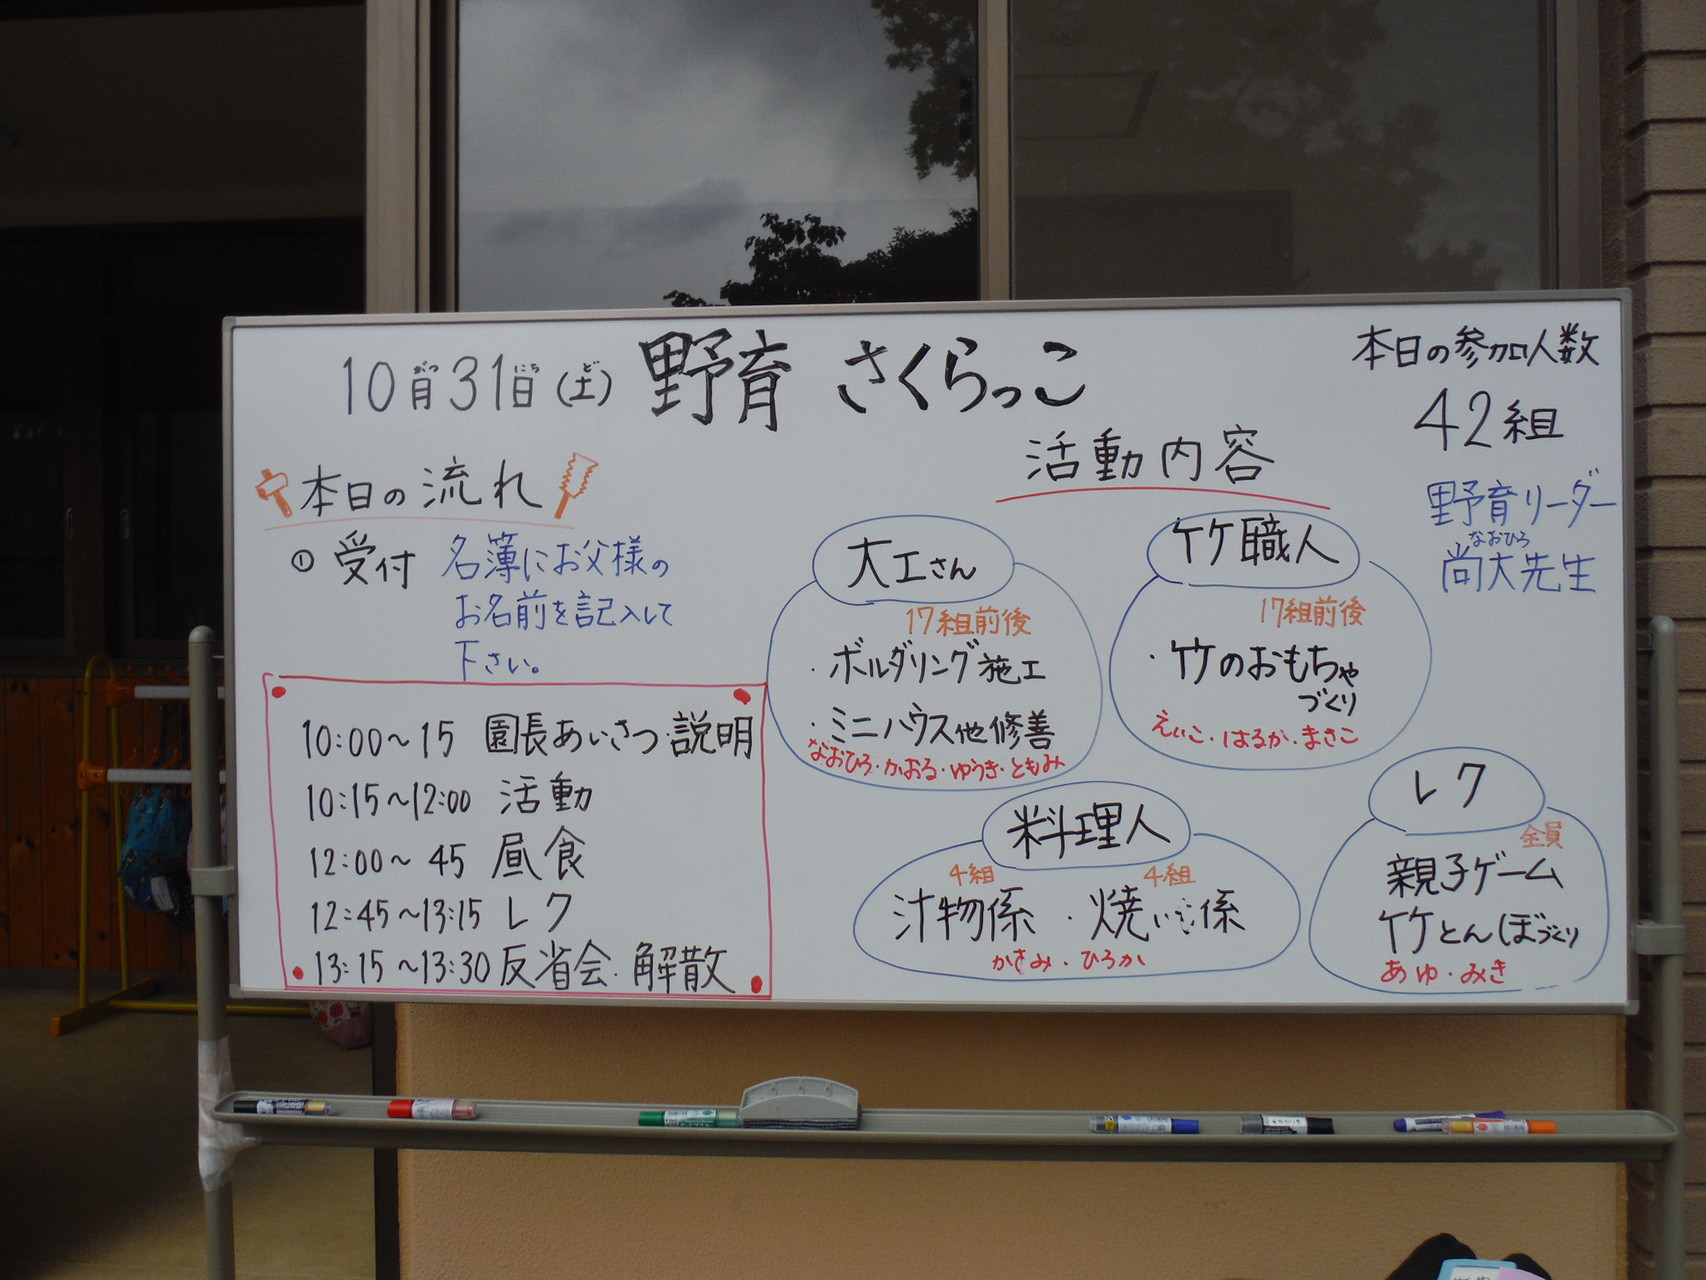 10月31日(土) 野育 さくらっこ
がつ にち ど
本日の参加人数
42組
野育リーダー
なおひろ
尚大先生
本日の流れ
① 受付 名簿にお父様の
お名前を記入して
下さい。
10:00~15 園長あいさつ・説明
10:15~12:00 活動
12:00~45 昼食
12:45~13:15 レク
13:15~13:30 反省会・解散
活動内容
大工さん
17組前後
・ボルダリング施工
・ミニハウス他修善
なおひろ・かおる・ゆうき・ともみ
竹職人
17組前後
・竹のおもちゃ
づくり
えいこ・はるか・まさこ
料理人
4組 4組
汁物係・焼いも係
かさみ・ひろか
レク
全員
親子ゲーム
竹とんぼづくり
あゆ・みき